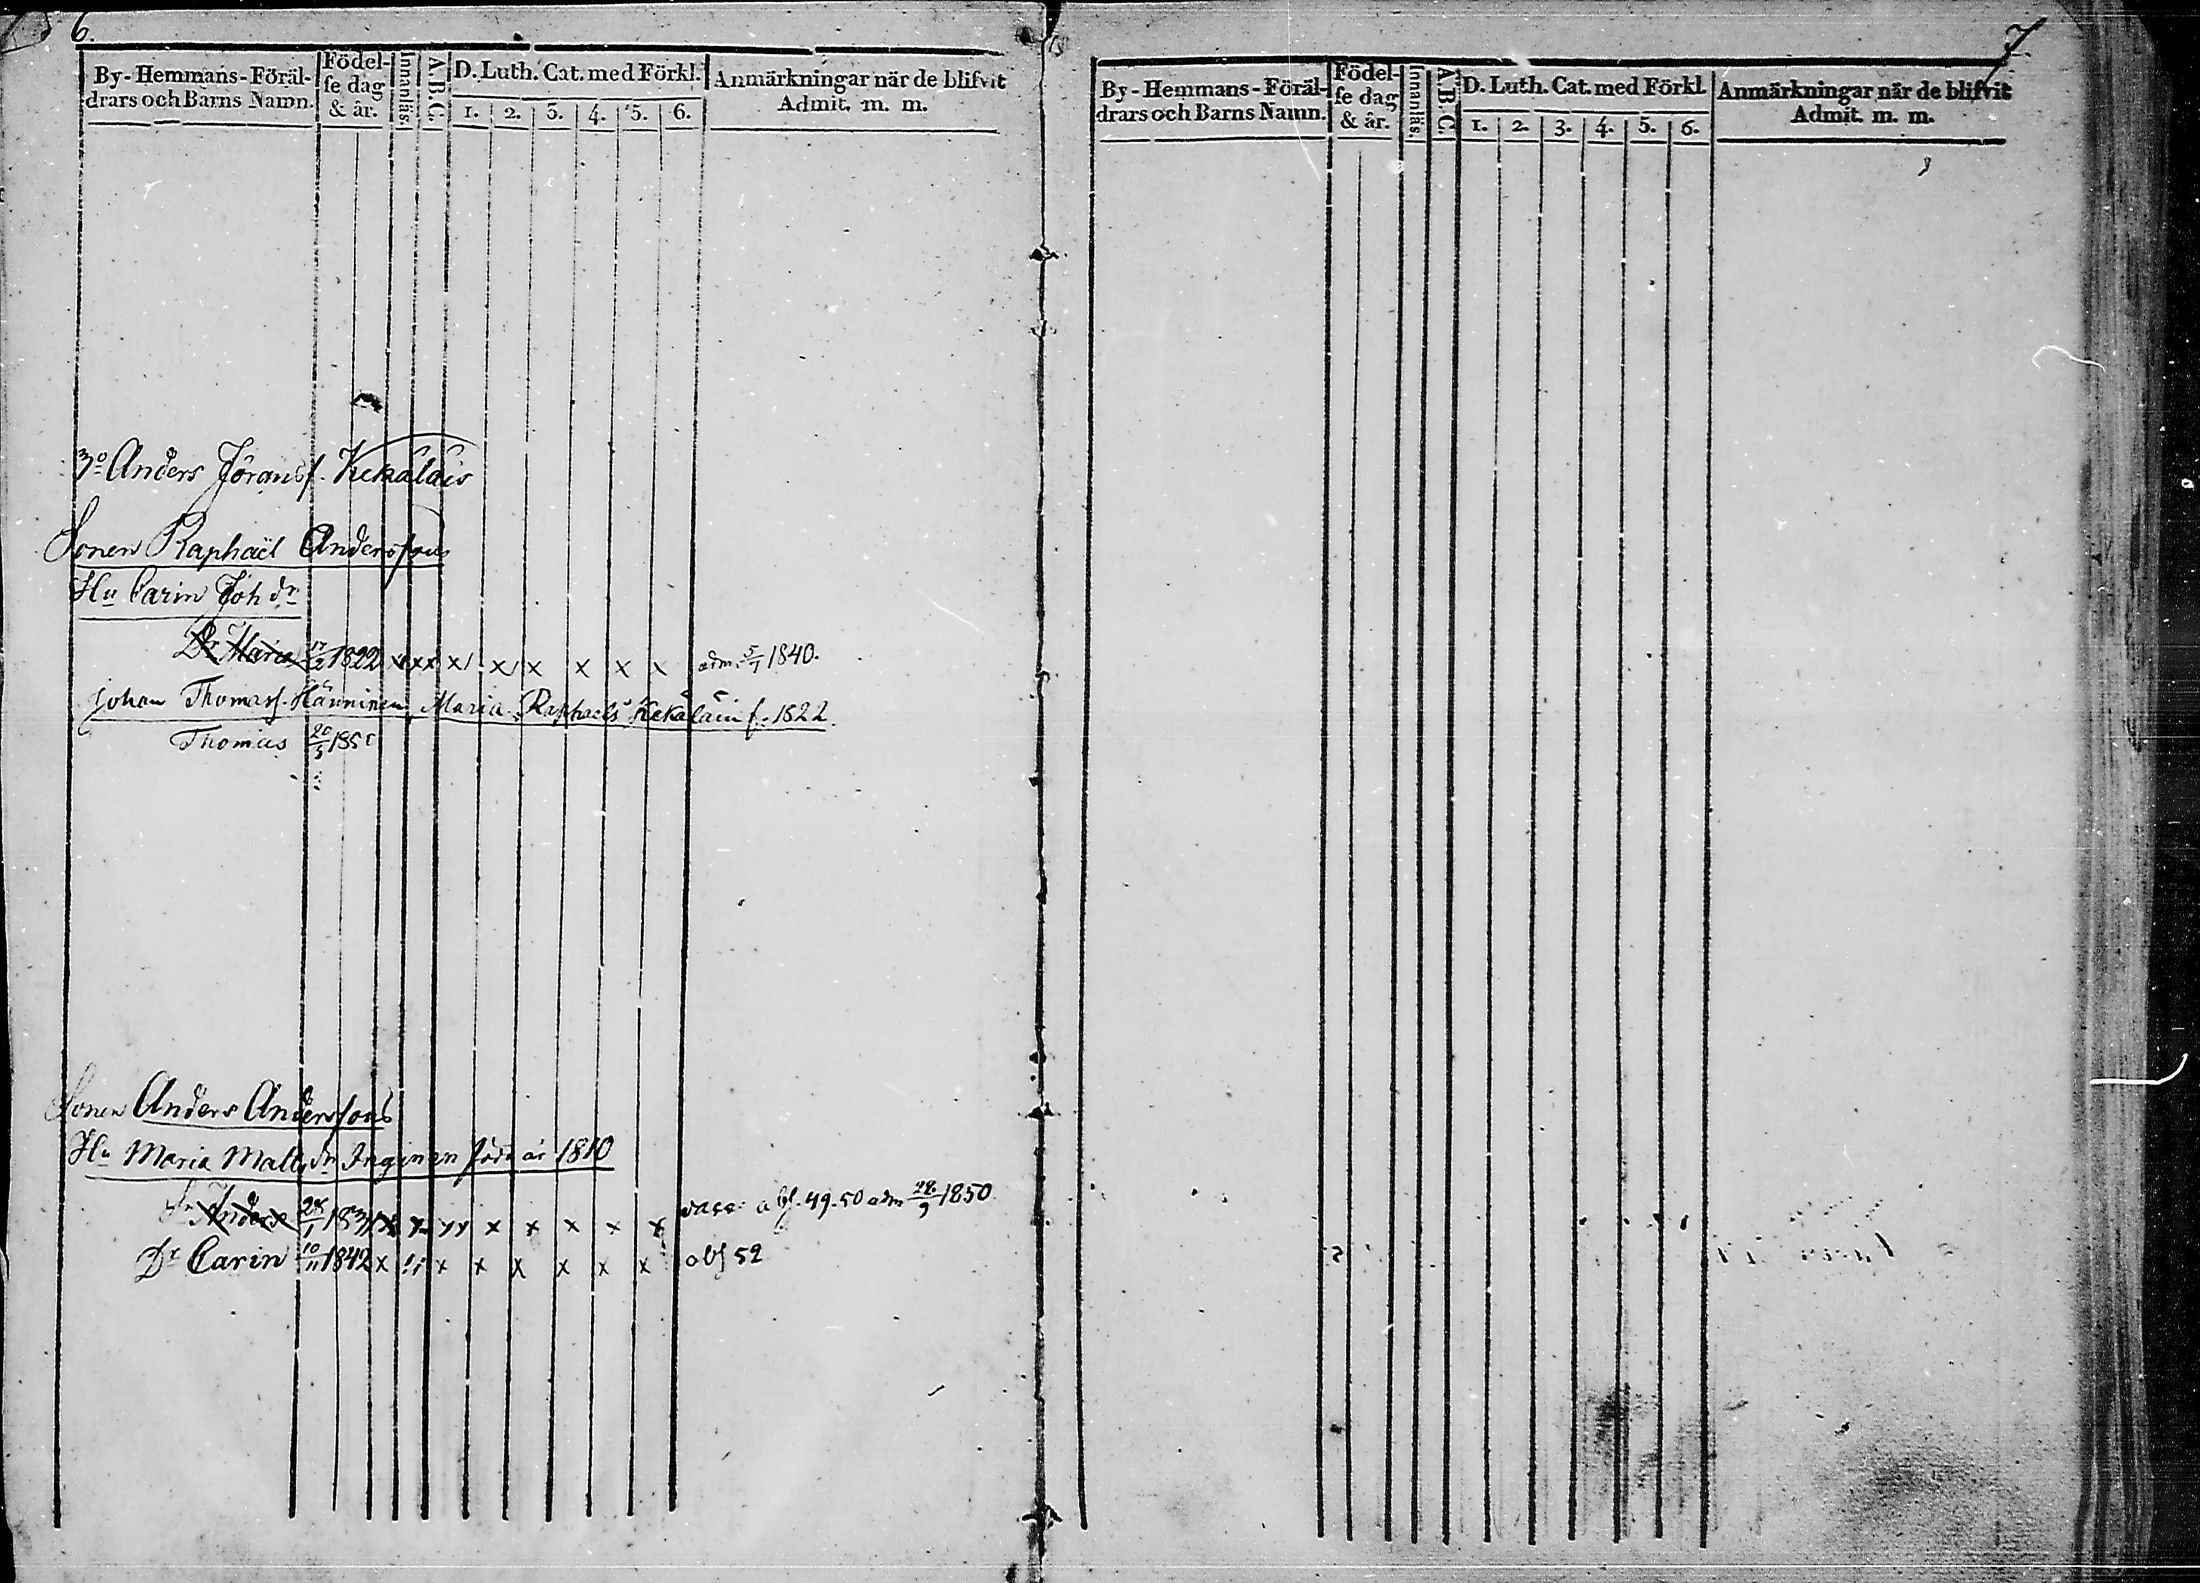 6.
By-Hemmans-Föräl-
drars och Barns Namn.
Födel-
se dag
& år.
Innanläs.
A.B.C.
D. Luth. Cat. med Förkl.
1. 2. 3. 4. 5. 6.
Anmärkningar när de blifvit
Admit. m. m.
3o Anders Jöransf. Kekäläis
Sonen Raphaël Anderssons
Hu Carin Joh dr
Dr Maria 17/2 1822 x x x x x x x x x adm. 5/7 1840.
Johan Thomasf. Hänninen, Maria Raphaelsdr Kekäläin f. 1822.
Thomas 20/3 185
Sonen Anders Anderssons
Hu Maria Matts dr Inginen född år 1810
Sn Anders 28/1 183 x x x x x x x x abs. 49. 50 adm 22/9 1850
Dr Carin 10/11 1842 x x x x x x x abs 52
7.
By-Hemmans-Föräl-
drars och Barns Namn.
Födel-
se dag
& år.
Innanläs.
A.B.C.
D. Luth. Cat. med Förkl.
1. 2. 3. 4. 5. 6.
Anmärkningar när de blifvit
Admit. m. m.